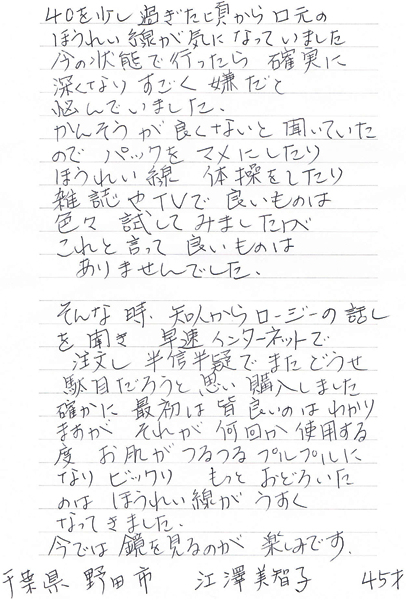 40を少し過ぎた頃から口元の
ほうれい線が気になっていました
今の状態で行ったら 確実に
深くなり すごく 嫌だと
悩んでいました、
かんそうが良くないと聞いていた
ので パックを マメにしたり
ほうれい線 体操をしたり
雑誌やTVで 良いものは
色々 試してみましたが
これと言って 良いものは
ありませんでした、
そんな時、知人からロージーの話し
を聞き 早速インターネットで
注文し 半信半疑で またどうせ
駄目だろうと思い購入しました
確かに 最初は皆良いのはわかり
ますが それが 何回か使用する
度 お肌がつるつるプルプルに
なり ビックリ もっと おどろいた
のは ほうれい線が うすく
なってきました、
今では 鏡を見るのが 楽しみです、
千葉県 野田市 江澤美智子 45才